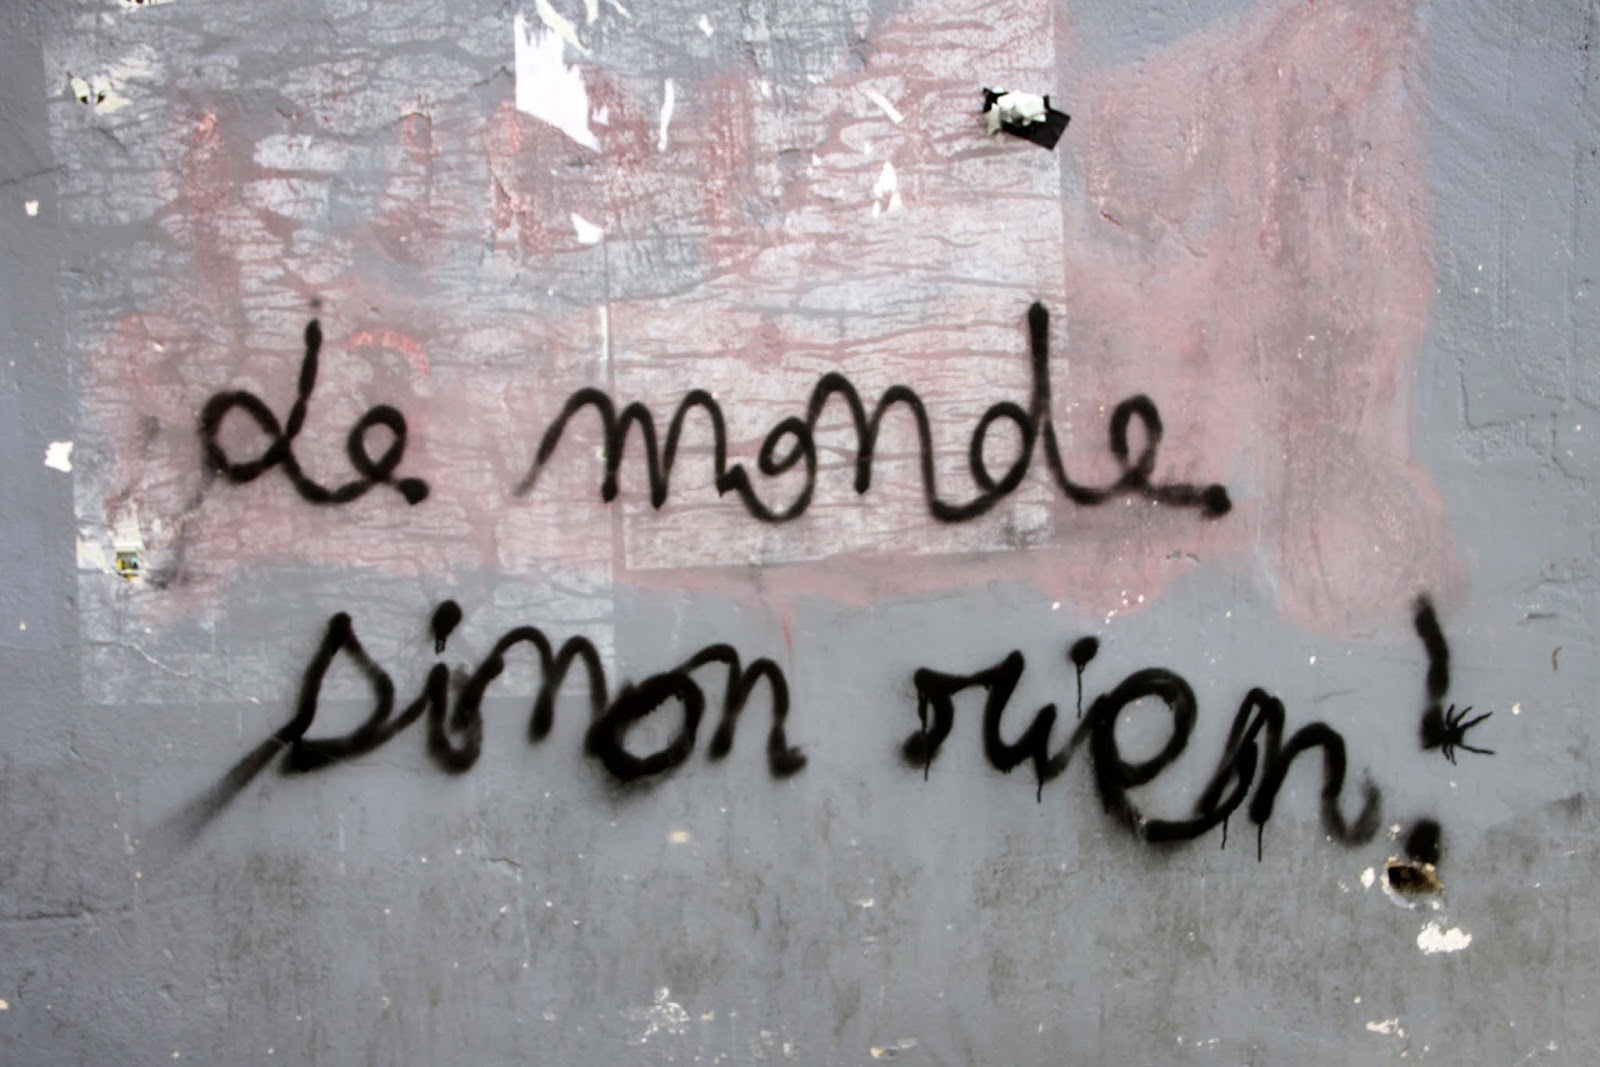 Le monde
sinon rien!